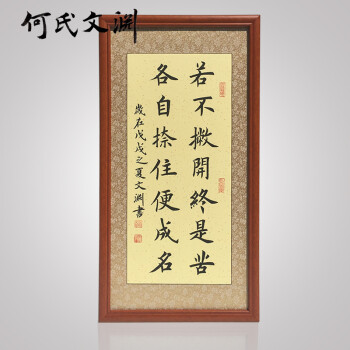 何氏文渊
若不撇開終是苦
各自捺住便成名
歲在戊戌之夏文渊書